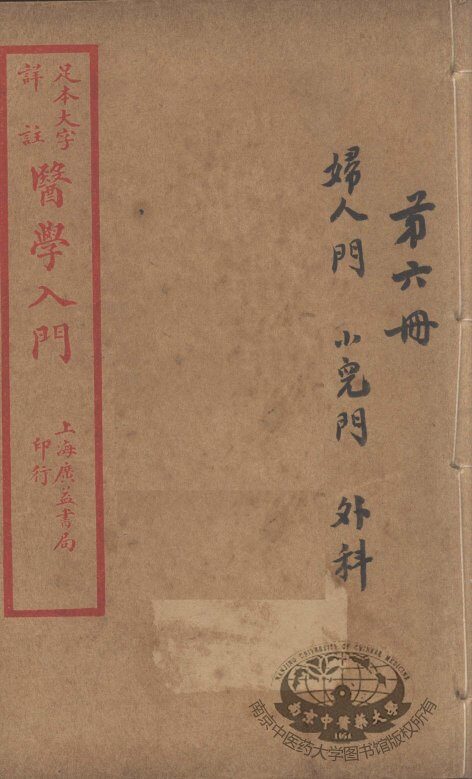 第六冊
婦人門 小兒門 外科
足本大字
詳註
醫學入門
上海廣益書局
印行
NANJING UNIVERSITY OF CHINESE MEDICINE
南京中醫藥大學
1954
南京中医药大学图书馆版权所有